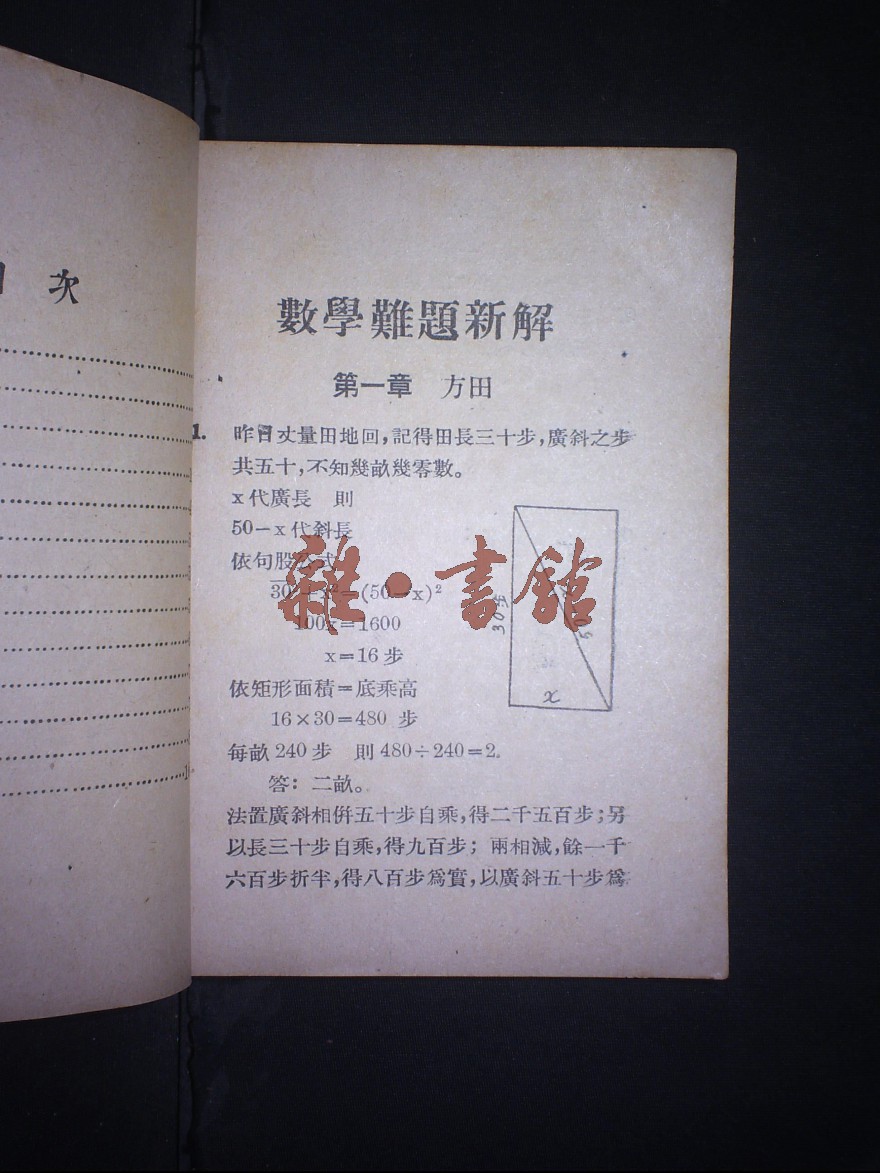 次
數學難題新解
第一章 方田
1. 昨日丈量田地回,記得田長三十步,廣斜之步
共五十,不知幾畝幾零數。
x代廣長 則
50-x代斜長
依句股公式
30²+x²=(50-x)²
100x=1600
x=16步
依矩形面積=底乘高
16×30=480 步
每畝240步 則480÷240=2.
答: 二畝。
法置廣斜相併五十步自乘,得二千五百步;另
以長三十步自乘,得九百步; 兩相減,餘一千
六百步折半,得八百步爲實,以廣斜五十步爲
30步
x
雜·書館